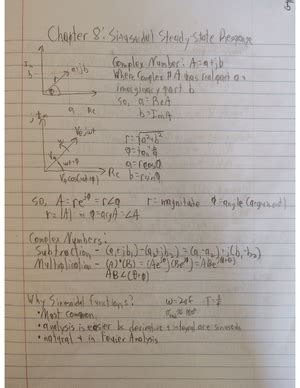 Chapter 8: Sinusoidal Steady State Response
Im
b
a+jb
r
a Re
Complex Number: A=a+jb
Where Complex # A has real part a +
imaginary part b
so, a=ReA
b=ImA
Im
V₀
ωt+φ
Re
V₀cos(ωt+φ)
r=√a²+b²
φ=tan⁻¹ b/a
a=rcosφ
b=rsinφ
so, A=re^jφ=r∠φ r=magnitude φ=angle (argument)
r=|A| φ=argA=∠A
Complex Numbers:
Subtraction - (a₁+jb₁)-(a₂+jb₂)=(a₁-a₂)+j(b₁-b₂)
Multiplication - (A)(B)=(Ae^jθ)(Be^jφ)=ABe^j(θ+φ)
AB∠(θ+φ)
Why Sinusoidal Functions? ω=2πf T=1/f
• Most common
• analysis is easier bc derivative + integral are sinusoids
• natural + in Fourier Analysis